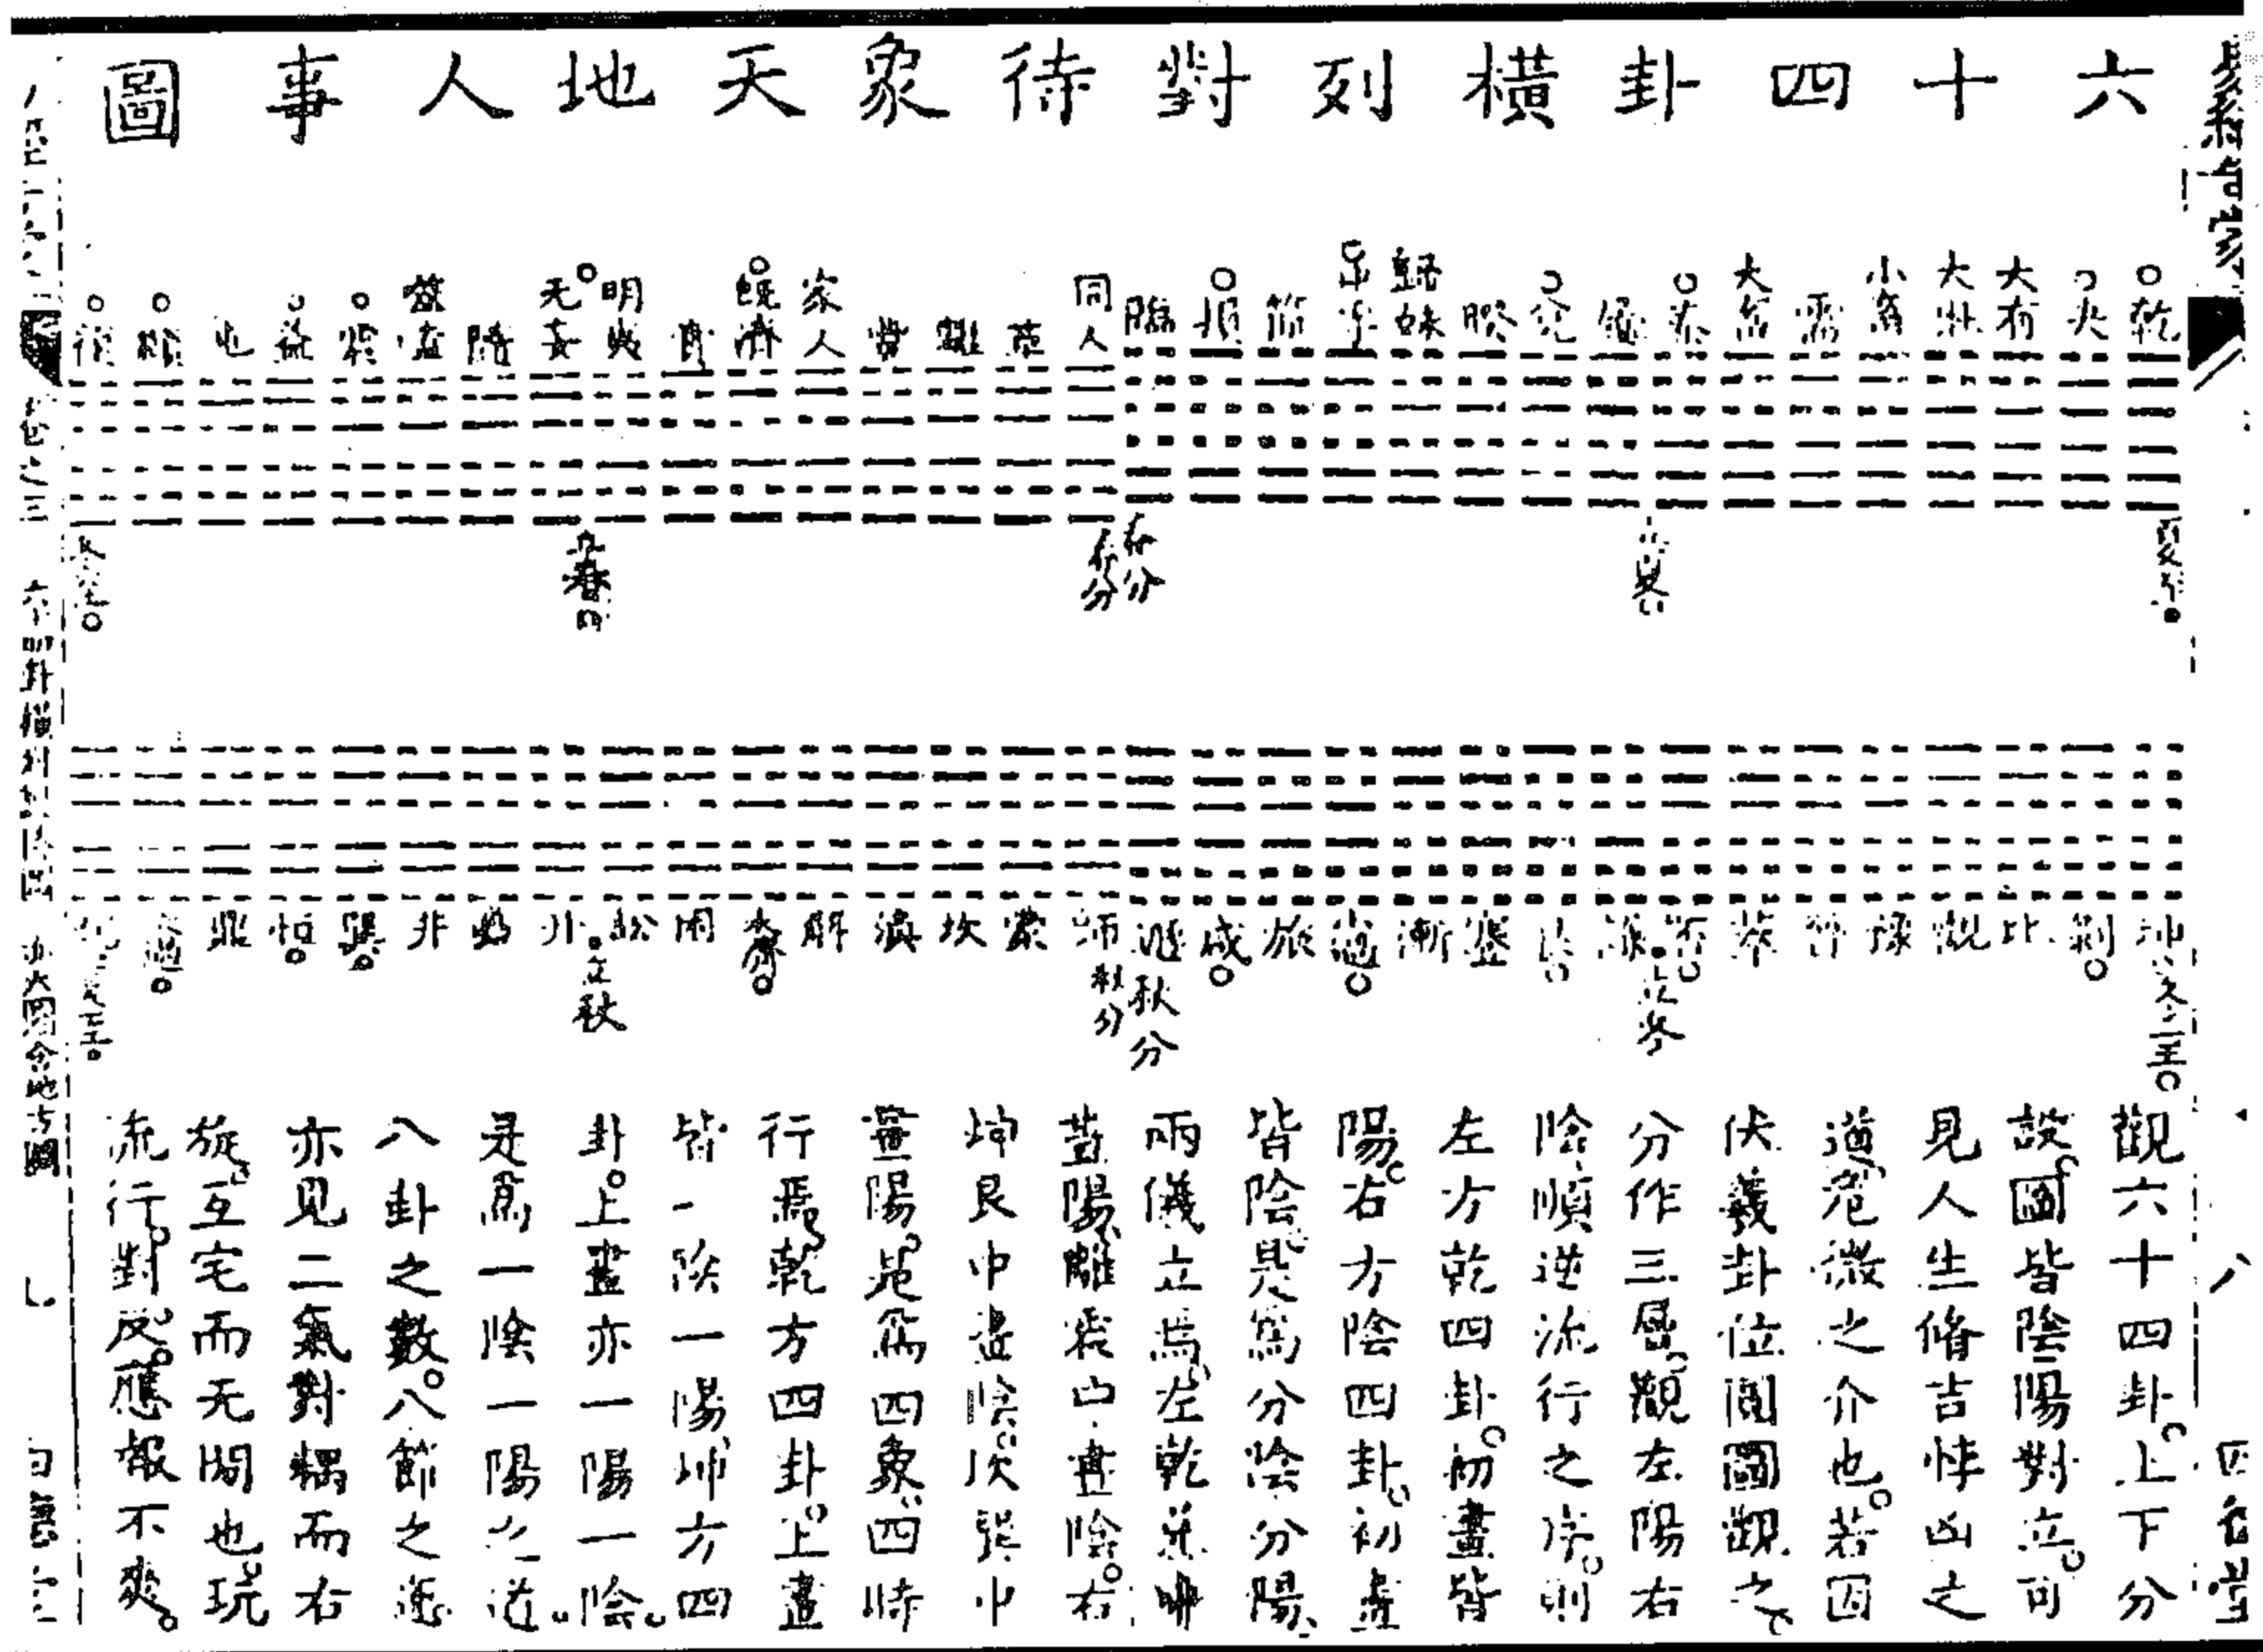 六十四卦橫列對待象天地人事圖
乾
夬
大有
大壯
小畜
需
大畜
泰
履
兌
睽
歸妹
中孚
節
損
臨
同人
革
離
豐
家人
既濟
賁
明夷
无妄
隨
噬嗑
震
益
屯
頤
復
夏至
春分
春分
立春
坤
剝
比
觀
豫
晉
萃
否
謙
艮
蹇
漸
小過
旅
咸
遯
師
蒙
坎
渙
解
未濟
困
訟
升
蠱
井
巽
恒
鼎
大過
冬至
立冬
秋分
秋分
立秋
觀六十四卦上下分
設圖皆陰陽對立可
見人生脩吉悖凶之
道危微之介也若因
伏羲卦位圓圖觀之
分作三層觀左陽右
陰順逆流行之序則
左方乾四卦初畫皆
陽右方陰四卦初畫
皆陰是為分陰分陽
兩儀立焉左乾兌中
畫陽離震中畫陰右
坤艮中畫陰坎巽中
畫陽是為四象四時
行焉乾方四卦上畫
皆一陰一陽坤方四
卦上畫亦一陽一陰
是為一陰一陽之道
八卦之數八節之運
亦見二氣對耦而右
旋互宅而无間也玩
流行對反應報不爽